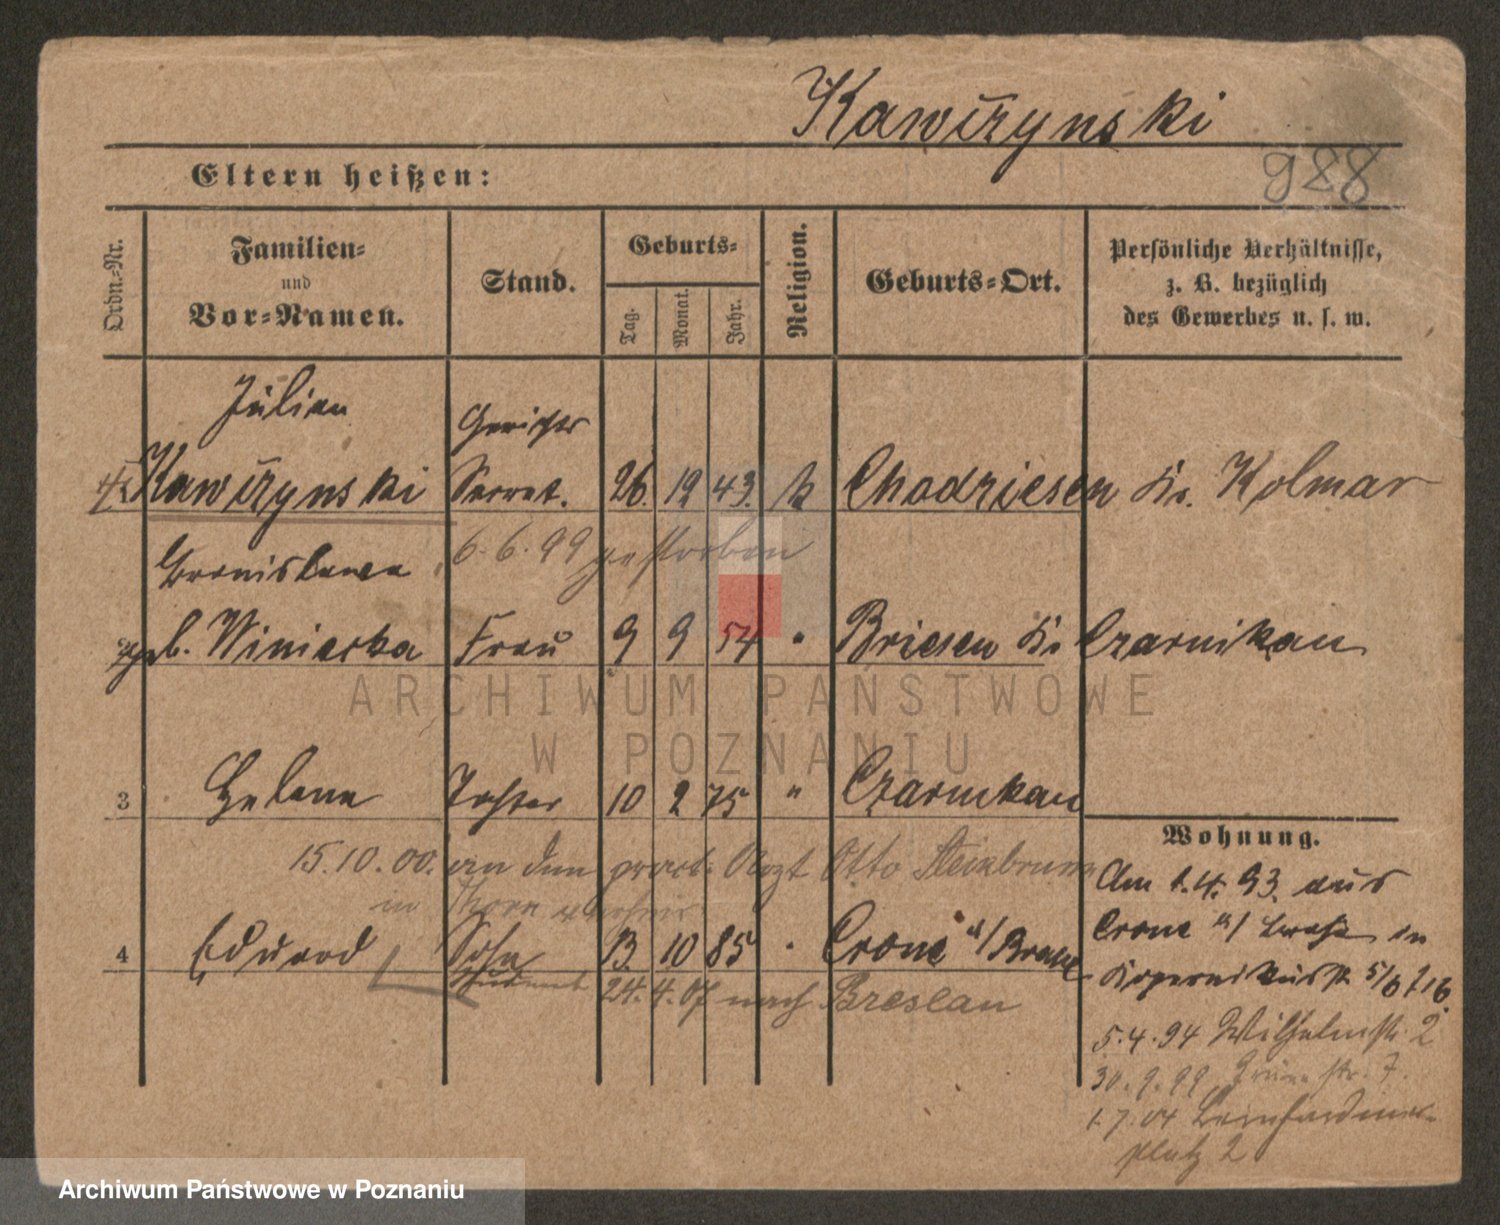 Kawczynski
988
Eltern heißen:
Ordn.-Nr.
Familien- und Vor-Namen.
Stand.
Geburts-
Tag.
Monat.
Jahr.
Religion.
Geburts-Ort.
Persönliche Verhältnisse,
z. B. bezüglich
des Gewerbes u. s. w.
Julian
Gerichts
Kawczynski Secret. 26. 12 43. k Chodziesen Kr. Kolmar
6.6.99 gestorben
Bronislawa
geb. Winiecka Frau 9 9 54 " Briesen Kr Czarnikau
3 Helene Tochter 10 2 75 " Czarnikau
15.10.00. an den pract. Arzt Otto Steinbrunn
in Thorn
4 Eduard Sohn 13. 10 85 " Crone a/Brahe
Student 24.4.07 nach Breslau
Wohnung.
Am 1.4.93. aus
Crone a/ Brahe in
Kopernikusstr 5/6
5.4.94 Wilhelmstr. 2
30.9.99 Grüne str. 7.
1.7.04 Bernhardiner-
platz 2
ARCHIWUM PAŃSTWOWE
W POZNANIU
Archiwum Państwowe w Poznaniu